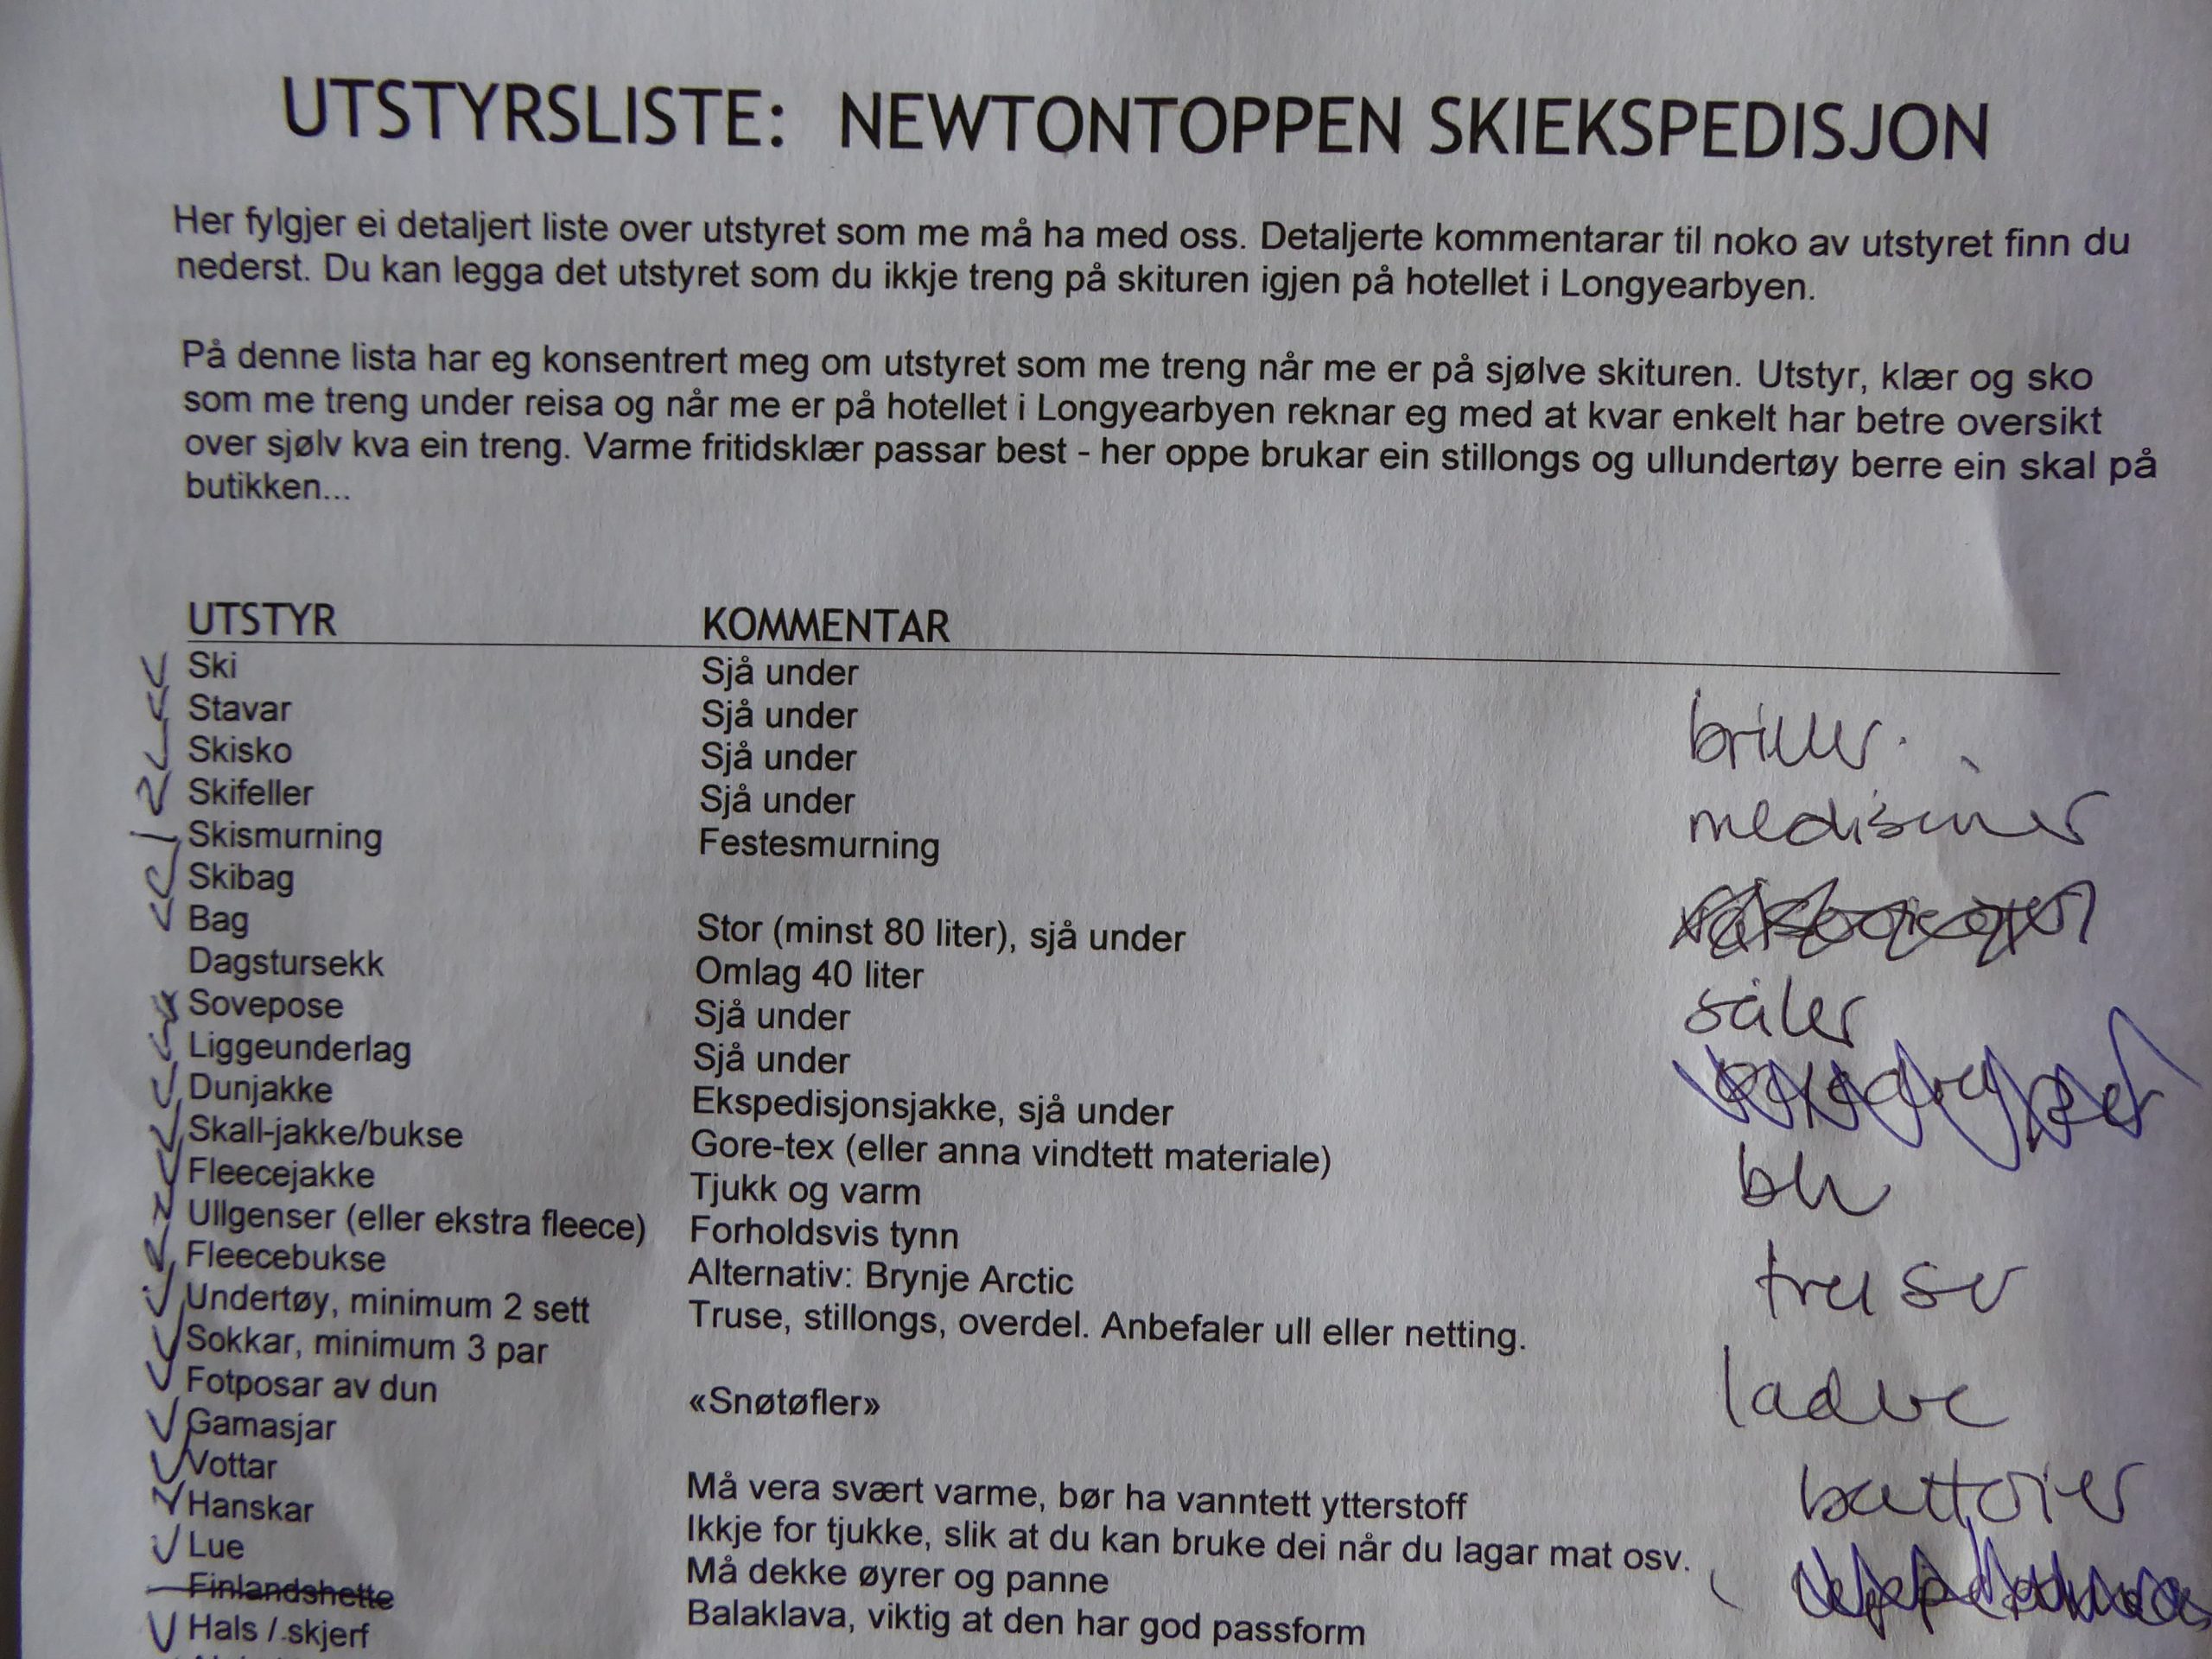 UTSTYRSLISTE: NEWTONTOPPEN SKIEKSPEDISJON
Her fylgjer ei detaljert liste over utstyret som me må ha med oss. Detaljerte kommentarar til noko av utstyret finn du
nederst. Du kan legga det utstyret som du ikkje treng på skituren igjen på hotellet i Longyearbyen.
På denne lista har eg konsentrert meg om utstyret som me treng når me er på sjølve skituren. Utstyr, klær og sko
som me treng under reisa og når me er på hotellet i Longyearbyen reknar eg med at kvar enkelt har betre oversikt
over sjølv kva ein treng. Varme fritidsklær passar best - her oppe brukar ein stillongs og ullundertøy berre ein skal på
butikken...
UTSTYR KOMMENTAR
Ski Sjå under
Stavar Sjå under
Skisko Sjå under
Skifeller Sjå under
Skismurning Festesmurning
Skibag
Bag Stor (minst 80 liter), sjå under
Dagstursekk Omlag 40 liter
Sovepose Sjå under
Liggeunderlag Sjå under
Dunjakke Ekspedisjonsjakke, sjå under
Skall-jakke/bukse Gore-tex (eller anna vindtett materiale)
Fleecejakke Tjukk og varm
Ullgenser (eller ekstra fleece) Forholdsvis tynn
Fleecebukse Alternativ: Brynje Arctic
Undertøy, minimum 2 sett Truse, stillongs, overdel. Anbefaler ull eller netting.
Sokkar, minimum 3 par
Fotposar av dun «Snøtøfler»
Gamasjar
Vottar Må vera svært varme, bør ha vanntett ytterstoff
Hanskar Ikkje for tjukke, slik at du kan bruke dei når du lagar mat osv.
Lue Må dekke øyrer og panne
Finlandshette Balaklava, viktig at den har god passform
Hals / skjerf
briller
medisiner
såler
bh
truser
ladere
batterier